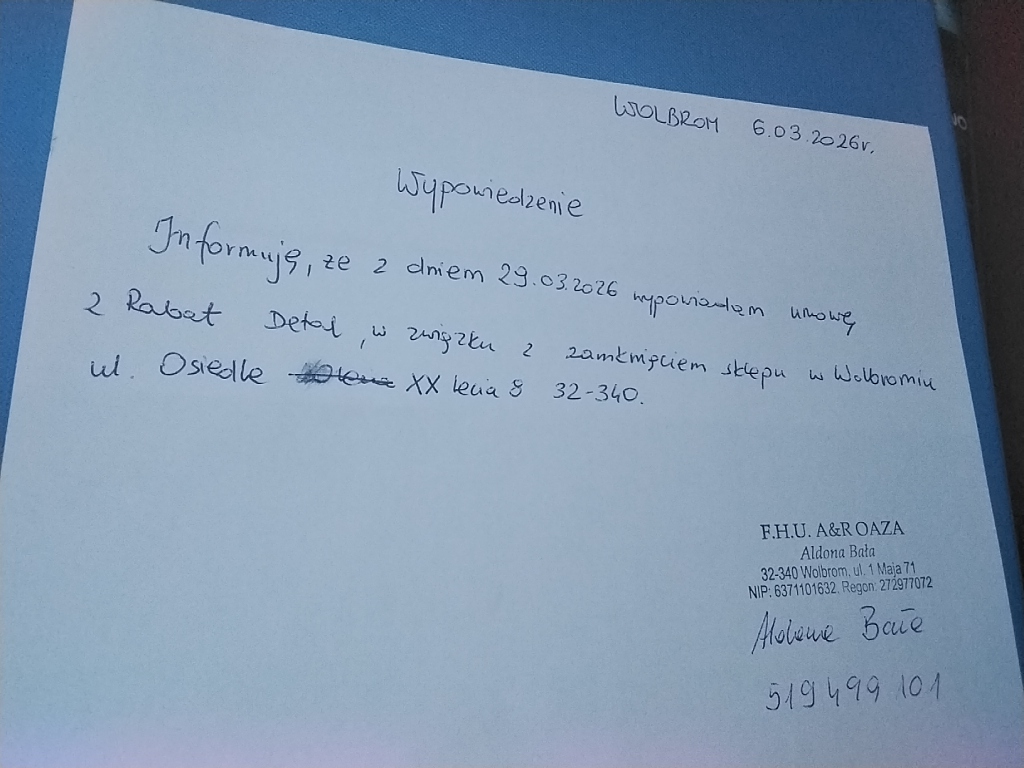 WOLBROM 6.03.2026r.
Wypowiedzenie
Informuję, że z dniem 29.03.2026 wypowiadam umowę
z Rabat Detal, w związku z zamknięciem sklepu w Wolbromiu
ul. Osiedle XX lecia 8 32-340.
F.H.U. A&R OAZA
Aldona Bała
32-340 Wolbrom, ul. 1 Maja 71
NIP: 6371101632, Regon: 272977072
Aldona Bała
519 499 101